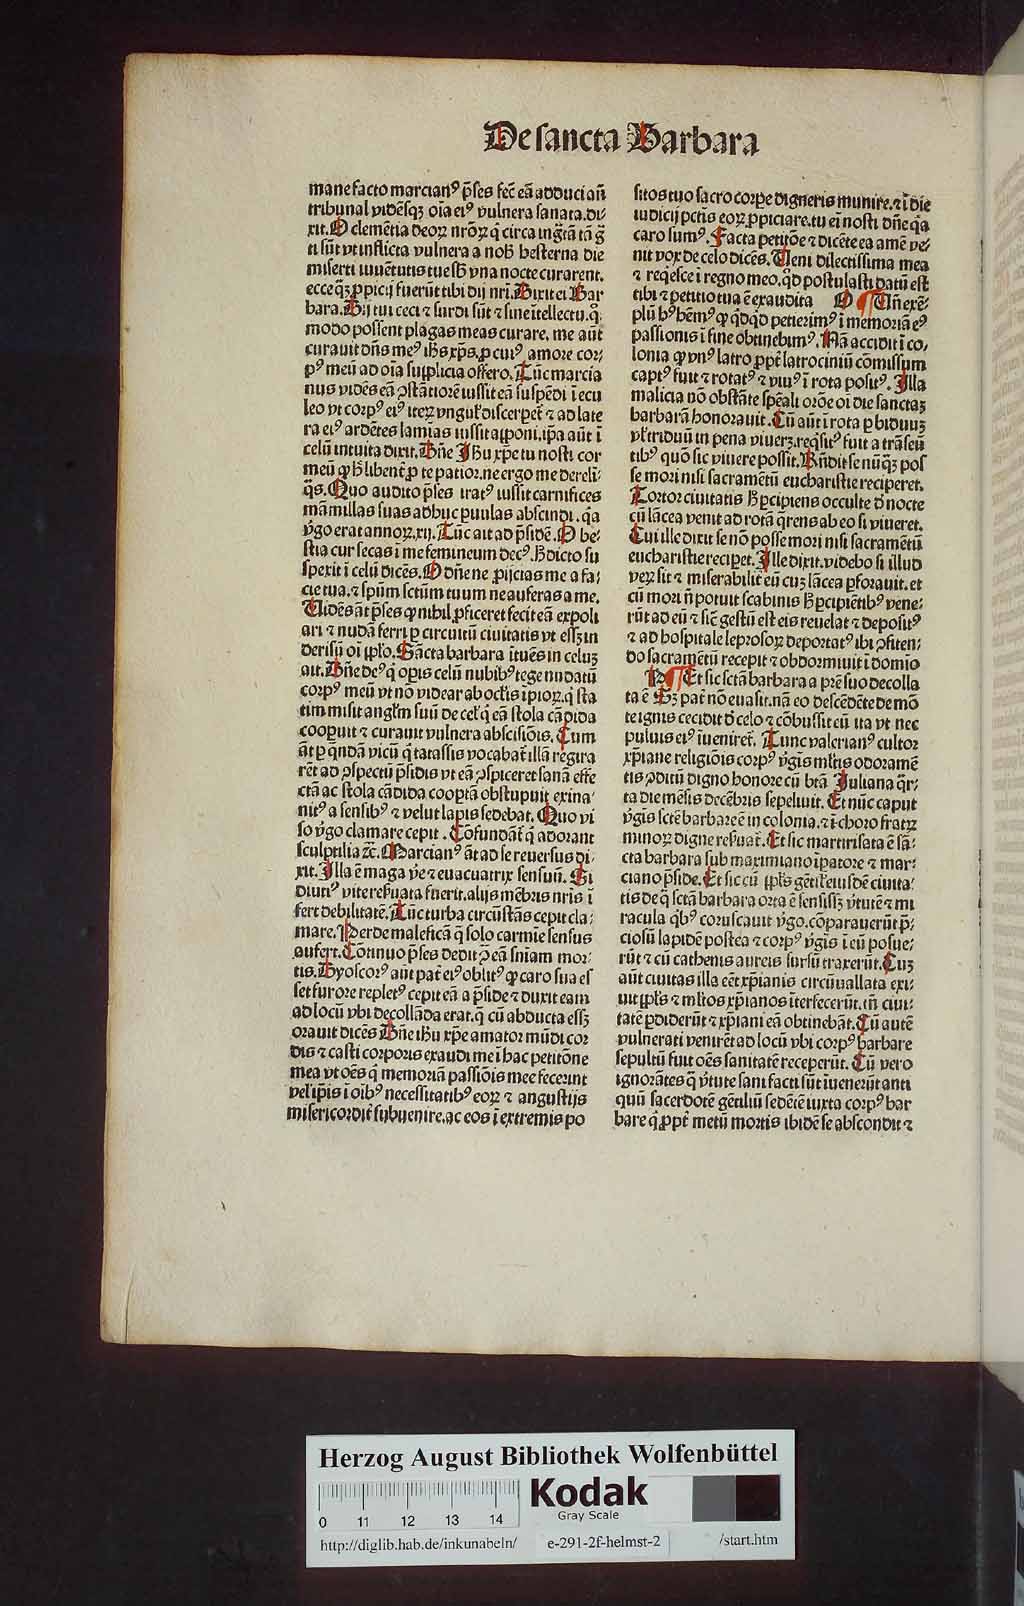 De sancta Barbara
mane facto marcianꝰ p̄ses fec̄ eā adduci an̄
tribunal vidēsqꝫ oīa eiꝰ vulnera sanata. di/
xit. O clemētia deoꝝ nr̄oꝝ q̄ circa ingr̄tā tā g̃
ti sūt vt inflicta vulnera a nob̄ hesterna die
miserti iuuētutis tue sb̄ vna nocte curarent.
ecce qꝫ ꝓpicij fuerūt tibi dij nr̄i. Dixit ei Bar
bara. Dij tui ceci ⁊ surdi sūt ⁊ sine ītellectu. q̇
modo possent plagas meas curare. me aūt
curauit dn̄s meꝰ ih̄s xp̄s. ꝓ cuiꝰ amore cor/
pꝰ meū ad oīa supplicia offero. Tūc marcia
nus vidēs eā ꝯstātiorē iussit eā suspēdi ī ecu
leo vt corpꝰ eiꝰ iteꝝ vngul̓ discerpet̄ ⁊ ad late
ra eiꝰ ardētes lamīas iussit apponi. ip̄a aūt ī
celū intuita dixit. Dn̄e Ih̄u xp̄e tu nosti cor
meū qꝫ h̄ libent̄ ꝓ te patior. ne ergo me dereli̇
q̄s. Quo audito p̄ses iratꝰ iussit carnifices
māmillas suas adhuc ꝑuulas abscindi. q̄a
v̓go erat annoꝝ. xij. Tūc ait ad p̄sidē. O be/
stia cur secas ī me femineum decꝰ. H̄ dicto su
spexit ī celū dicēs. O dn̄e ne ꝓijcias me a fa/
cie tua. ⁊ spūm sctūm tuum ne auferas a me.
Uidēs āt p̄ses qꝫ nihil ꝓficeret fecit eā expoli
ari ⁊ nudā ferri ꝑ circuitū ciuitatis vt essꝫ in
derisū oī pl̓o. Sācta barbara ītuēs in celuꝫ
ait. Dn̄e deꝰ q̇ oꝑis celū nubibꝰ tege nudatū
corpꝰ meū vt nō videar ab ocl̓is īpioꝝ. q̇ sta
tim misit angl̓m suū de cel̓ q̇ eā stola cādida
cooꝑuit ⁊ curauit vulnera abscisiōis. Cum
āt ꝑ q̄ndā vicū q̄ tatassis vocabat̄ illā regira
ret ad ꝯspectū p̄sidis vt eā ꝯspiceret sanā effe
ctā ac stola cādida cooꝑtā obstupuit exina/
nitꝰ a sensibꝰ ⁊ velut lapis sedebat. Quo vi
so v̓go clamare cepit. Cōfundāt̄ q̇ adorant
sculptilia ⁊c̄. Marcianꝰ āt ad se reuersus di/
xit. Illa ē maga v̓e ⁊ euacuatrix sensuū. Si
diutiꝰ vite reẜuata fuerit. alijs mēbris nr̄is ī
fert debilitatē. Tūc turba circūstās cepit cla/
mare. Perde maleficā q̄ solo carmīe sensus
aufert. Cōmuo p̄ses dedit ꝯ eā sniam mor/
tis. Dyoscorꝰ aūt pat̄ eiꝰ oblitꝰ qꝫ caro sua es
set furore repletꝰ cepit eā a p̄side ⁊ duxit eam
ad locū vbi decollāda erat. q̄ cū abducta essꝫ
orauit dicēs Dn̄e ih̄u xp̄e amator mūdi cor
dis ⁊ casti corporis exaudi me ī hac petitōne
mea vt oēs q̇ memoriā passiōis mee fecerint
vel̓ ip̄is ī oībꝰ necessitatibꝰ eoꝝ ⁊ angustijs
misericordit̄ subuenire. ac eos ī extremis po
sitos tuo sacro corꝑe digneris munire. ⁊ ī die
iudicij pct̄is eoꝝ ꝓpiciare. tu ei̅ nosti dn̄e q̄a
caro sumꝰ. Facta petitōe ⁊ dicēte ea amē ve/
nit vox de celo dicēs. Ueni dilectissima mea
⁊ req̇esce ī regno meo. qd̄ postulasti datū est
tibi ⁊ petitio tua ē exaudita O ¶ Un̄ exē/
plū hꝰ hēmꝰ qꝫ qd̄qd̄ petierimꝰ ī memoriā eꝰ
passionis ī fine obtinebimꝰ. Nā accidit ī co/
lonia qꝫ vnꝰ latro ꝓpt̄ latrociniū cōmissum
captꝰ fuit ⁊ rotatꝰ ⁊ viuꝰ ī rota positꝰ. Illa
malicia nō obstāte spēali orōe oī die sanctaꝫ
barbarā honorauit. Cū aūt ī rota ꝑ biduuꝫ
vl̓ triduū in pena viuerꝫ. req̇sitꝰ fuit a trāseū
tibꝰ quō sic viuere possit. Rn̄dit se nūqꝫ pos
se mori nisi sacramētū eucharistie reciperet.
Tortor ciuitatis h̄ ꝑcipiens occulte d̄ nocte
cū lācea venit ad rotā q̄rens ab eo si viueret.
Cui ille dixit se nō posse mori nisi sacramētū
eucharistie reciꝑet. Ille dixit. videbo si illud
veꝝ sit ⁊ miserabilit̄ eū cuꝫ lācea ꝑforauit. et
cū mori n̄ potuit scabinis h̄ ꝑcipiētibꝰ vene/
rūt ad eū ⁊ sic̄ gestū est eis reuelat̄ ⁊ depositꝰ
⁊ ad hospitale leprosoꝝ deportatꝰ ibi ꝯfiten/
do sacramētū recepit ⁊ obdormiuit ī domīo
P ¶ Et sic sctā barbara a pr̄e suo decolla
ta ē Sꝫ pat̄ nō euasit. nā eo descēdēte de mō
te ignis cecidit d̄ celo ⁊ cōbussit eū ita vt nec
puluis eiꝰ īueniret̄. Tunc valerianꝰ cultor
xp̄iane religiōis corpꝰ v̓gīs ml̓tis odoramē
tis ꝯditū digno honore cū btā Juliana q̄r/
ta die mēsis decēbris sepeliuit. Et nūc caput
v̓gīs sctē barbare ē in colonia. ⁊ ī choro fratꝝ
minoꝝ digne reẜuat̄. Et sic martirisata ē sā/
cta barbara sub maximiano īpatore ⁊ mar/
ciano p̄side. Et sic cū ipl̓s gētil̓ eiusdē ciuita/
tis de q̄ sctā barbara orta ē sensissꝫ v̓tutē ⁊ mi
racula qͥbꝰ coruscauit v̓go. cōparauerūt p̄/
ciosū lapidē postea ⁊ corpꝰ v̓gis ī eū posue/
rūt ⁊ cū cathenis aureis sursū traxerūt. Cuꝫ
aūt ciuitas illa eēt xp̄ianis circūuallata exi/
uit ipl̓s ⁊ ml̓tos xp̄ianos īterfecerūt. in̄ ciui/
tatē ꝑdiderūt ⁊ xp̄iani eā obtinebāt. Cū autē
vulnerati venirēt ad locū vbi corpꝰ barbare
sepultū fuit oēs sanitatē receperūt. Cū vero
ignorātes q̄ v̓tute sani facti sūt īuenerūt anti
quū sacerdotē gētiliū sedētē iuxta corpꝰ bar
bare q̇ ꝓpt̄ metū mortis ibidē se abscondit ⁊
Herzog August Bibliothek Wolfenbüttel
0 11 12 13 14
Kodak
Gray Scale
http://diglib.hab.de/inkunabeln/ e-291-2f-helmst-2 /start.htm